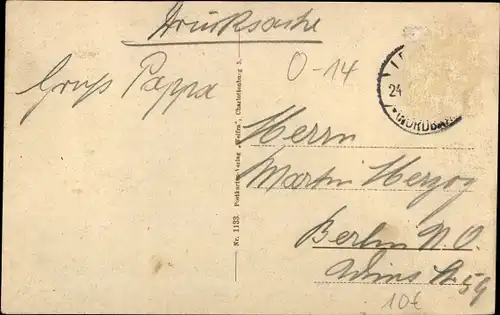 Drucksache
Gruß Pappa
0-14
24
NORDBA
Nr. 1133 Postkartenverlag „Welfen", Charlottenburg 5.
Herrn
Martin Herzog
Berlin N.O.
Wins Str 59
10€